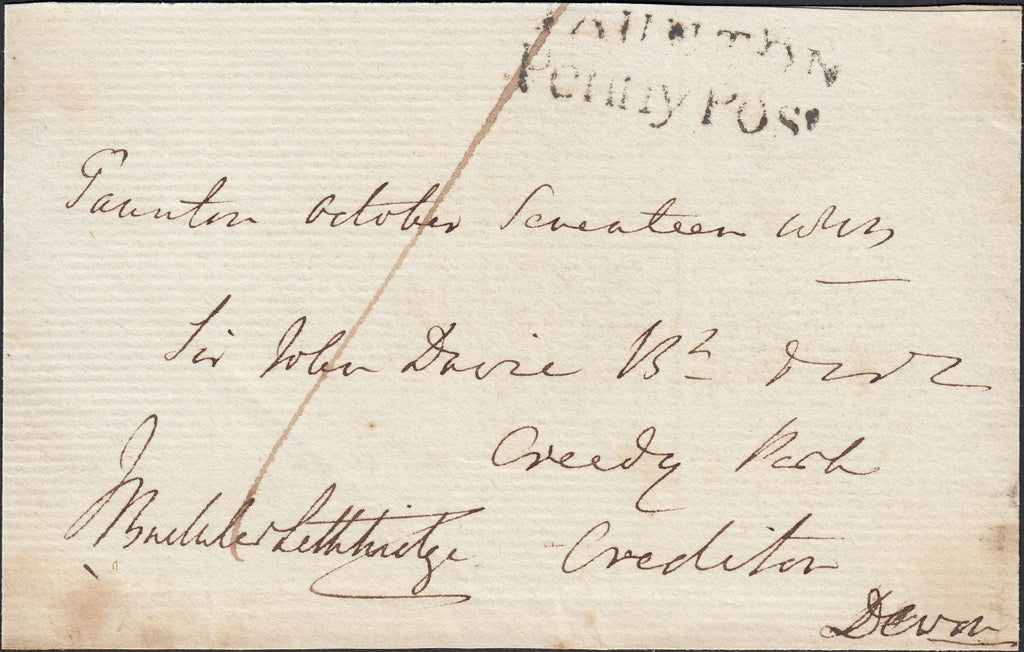 TAUNTON
Penny Post
Taunton October Seventeen
Sir John Davie Bt
Creedy Park
J Buckler Lethbridge Crediton
Devon